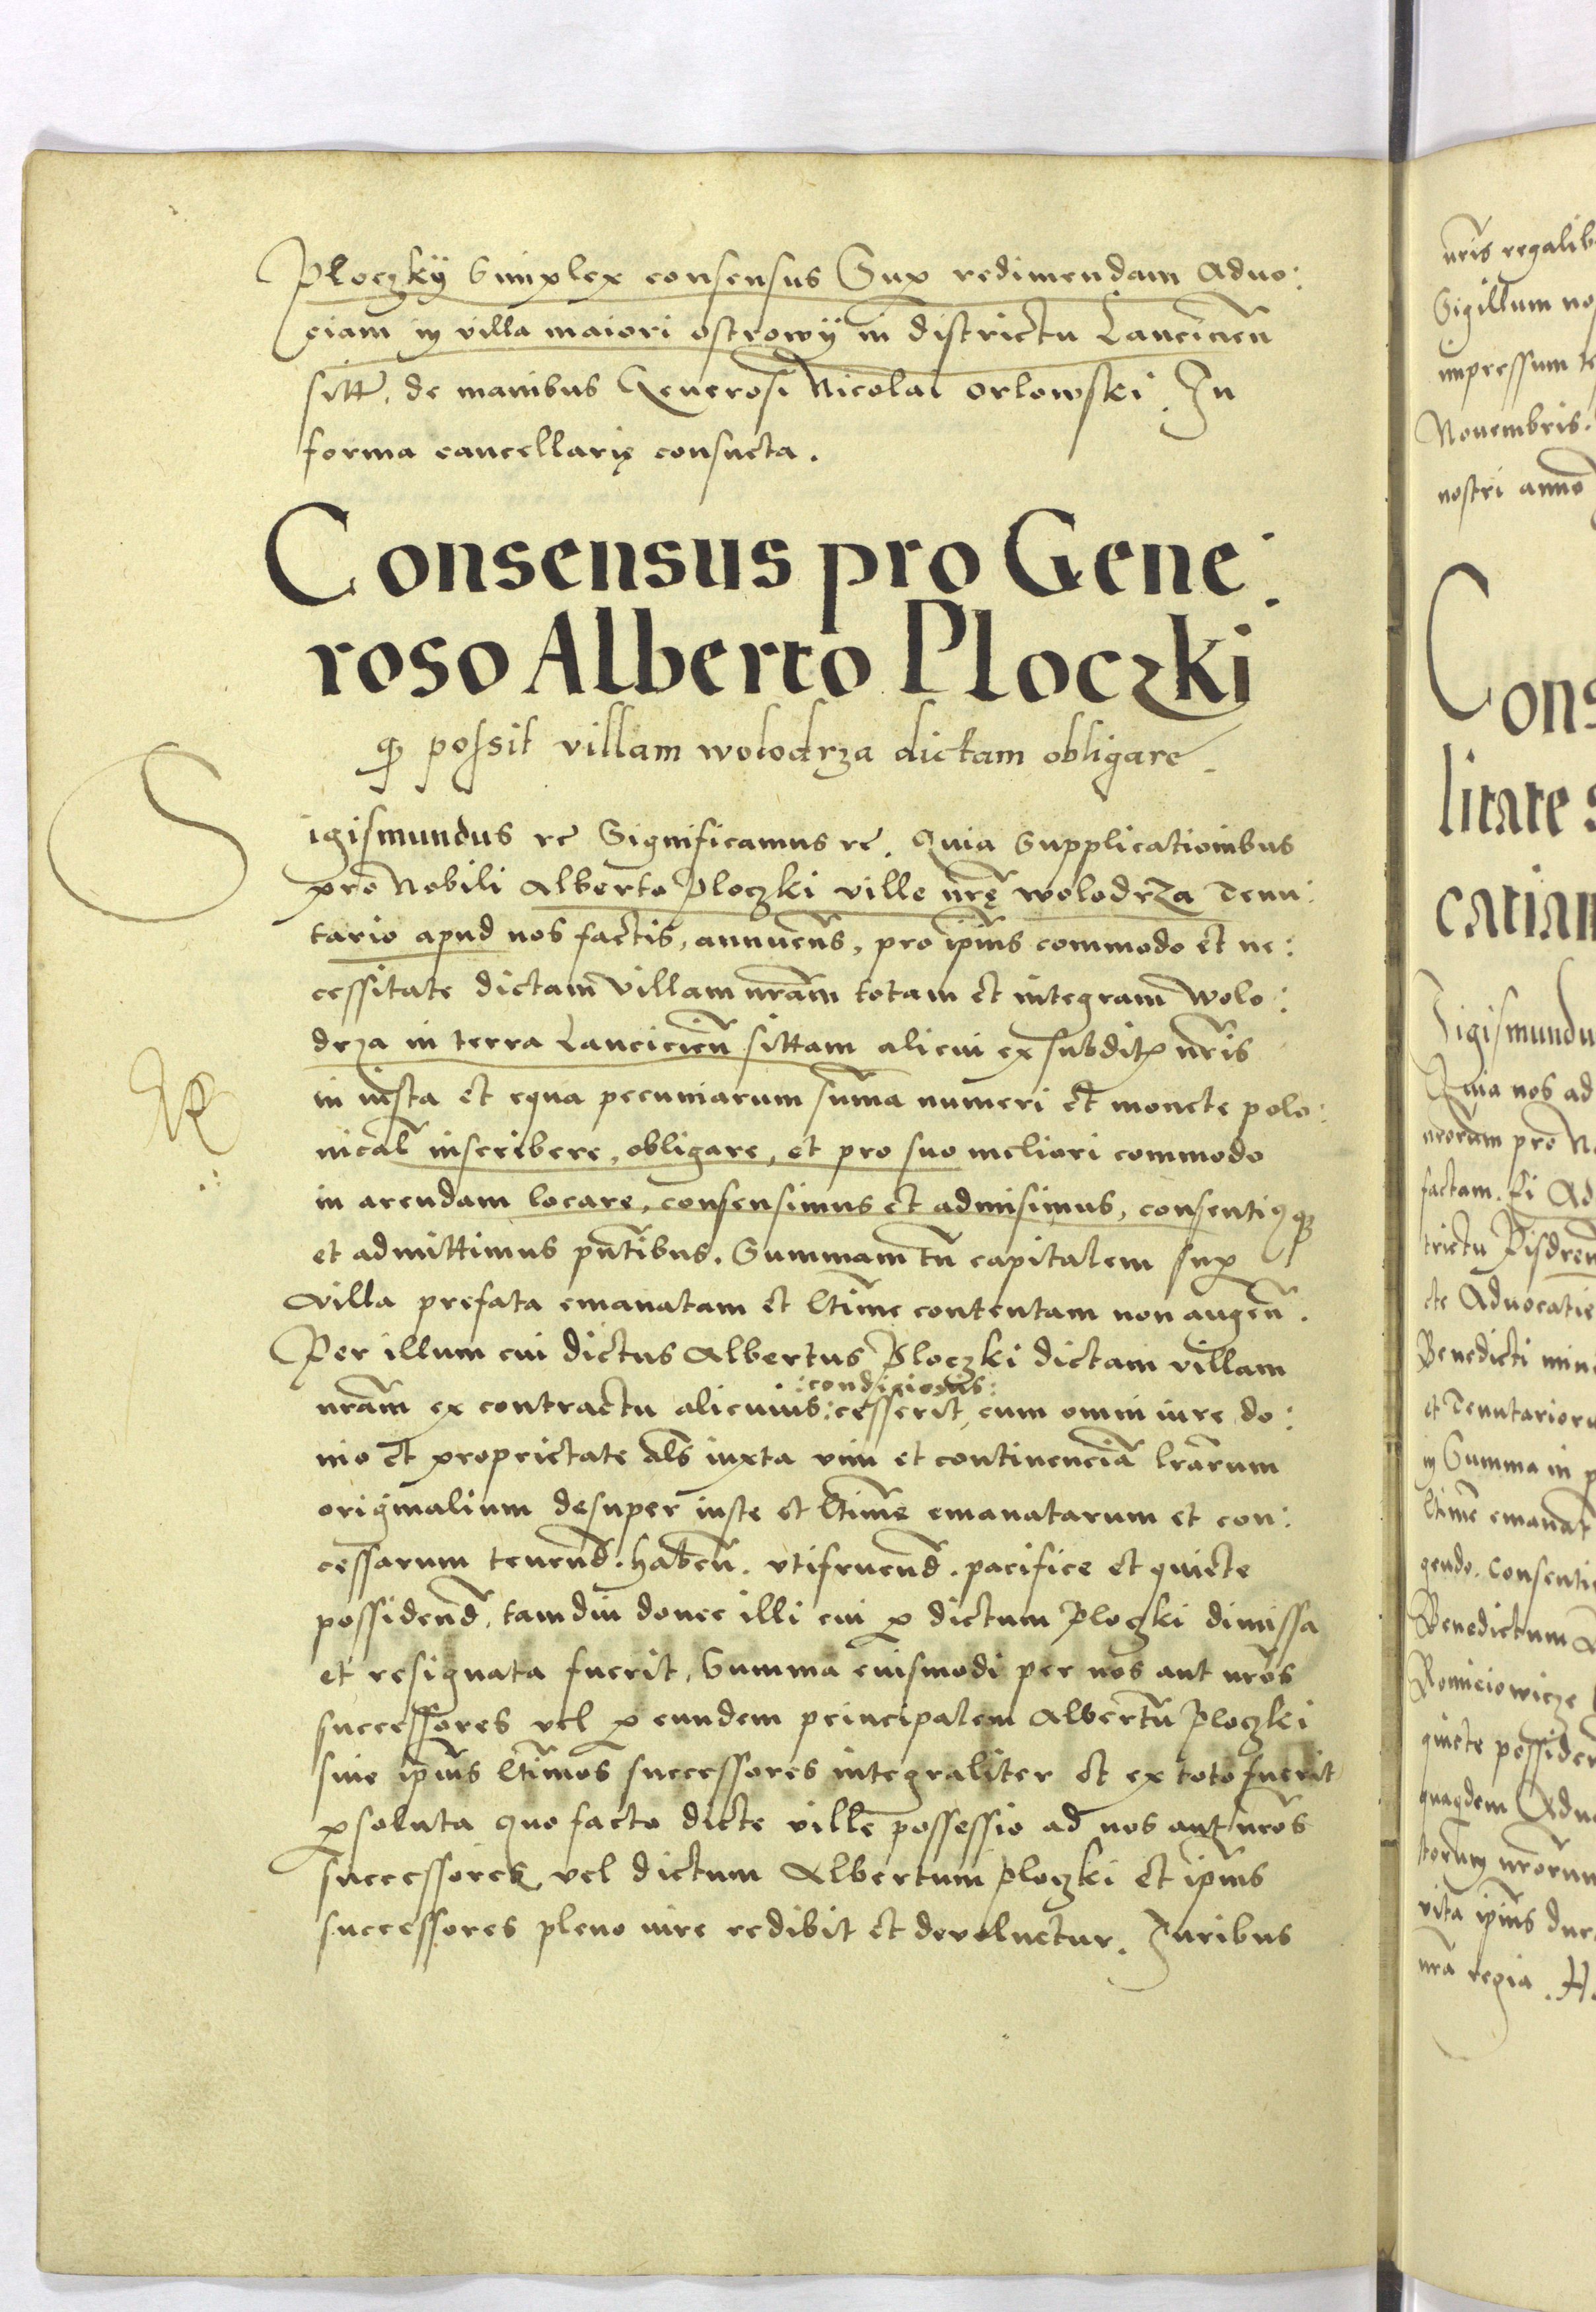 Ploczkÿ Simplex consensus Sup redimendam Aduo:
ciam in villa maiori ostrowÿ in districtu Lancicień
sitt̃. de manibus Generosi Nicolai Orlowski. In
forma cancellarię consueta.
Consensus pro Gene:
roso Alberto Ploczki
possit villam wolodrza dictam obligare.
Sigismundus rc Significamus rc. Quia Supplicationibus
pro Nobili Alberto Ploczki ville nrę wolodrza Tenu:
tario apud nos factis, annuentes, pro ipius commodo et ne:
cessitate dictam villam nram totam et integram Wolo:
drza in terra Lancicień sittam alicui ex subdit nris
in iusta et equa pecuniarum suma numeri et monete polo:
nical inscribere, obligare, et pro suo meliori commodo
in arendam locare, consensimus et admisimus, consentiq
et admittimus pntibus. Summam tn capitalem sup
villa prefata emanatam et ltime contentam non augeñ.
Per illum cui dictus Albertus Ploczki dictam villam
:condicionis:
nram ex contractu alicuius: cesserit, cum omni iure do:
nio et proprietate als iuxta vim et continenciã lrarum
originalium desuper iuste et ltime emanatarum et con:
cessarum tenend. habeñ. vtifruend. pacifice et quiete
possidend, tamdiu donec illi cui p dictum Ploczki dimissa
et resignata fuerit, Summa euismodi per nos aut nros
successores vel p eundem principalem Albertũ Ploczki
siue ipius ltimos successores integraliter et ex toto fuerit
psoluta quo facto dicte ville possessio ad nos aut nros
successores vel dictum Albertum Ploczki et ipius
successores pleno iure redibit et deuoluetur. Iuribus
nris regalib
Sigillum no
impressum te
Nouembris.
nostri anno
Cons
litate s
catiam
Sigismundu
Quia nos ad
nrorum pro N
factam.
trictu
cte Aduocatie
Benedicti
et Tenutarioru
in Summa in p
ltime emanat
gendo. Consenti
Benedictum
quiete possiden
quaqdem Aduo
torum nrorum
vita ipius dur
nra regia. H